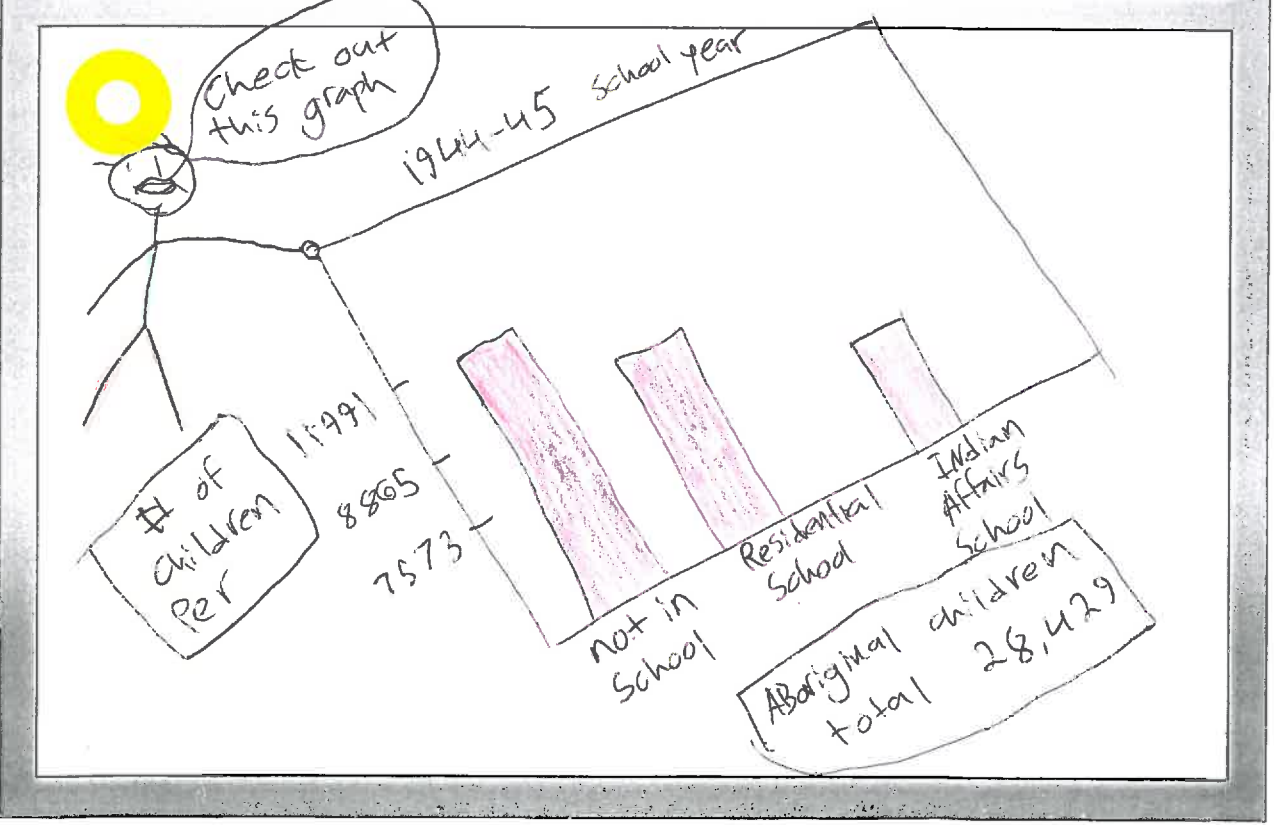 Check out
this graph
1944-45 school year
# of
children
Per
11991
8865
7573
not in
School
Residential
School
INdian
Affairs
School
ABoriginal children
total 28,429